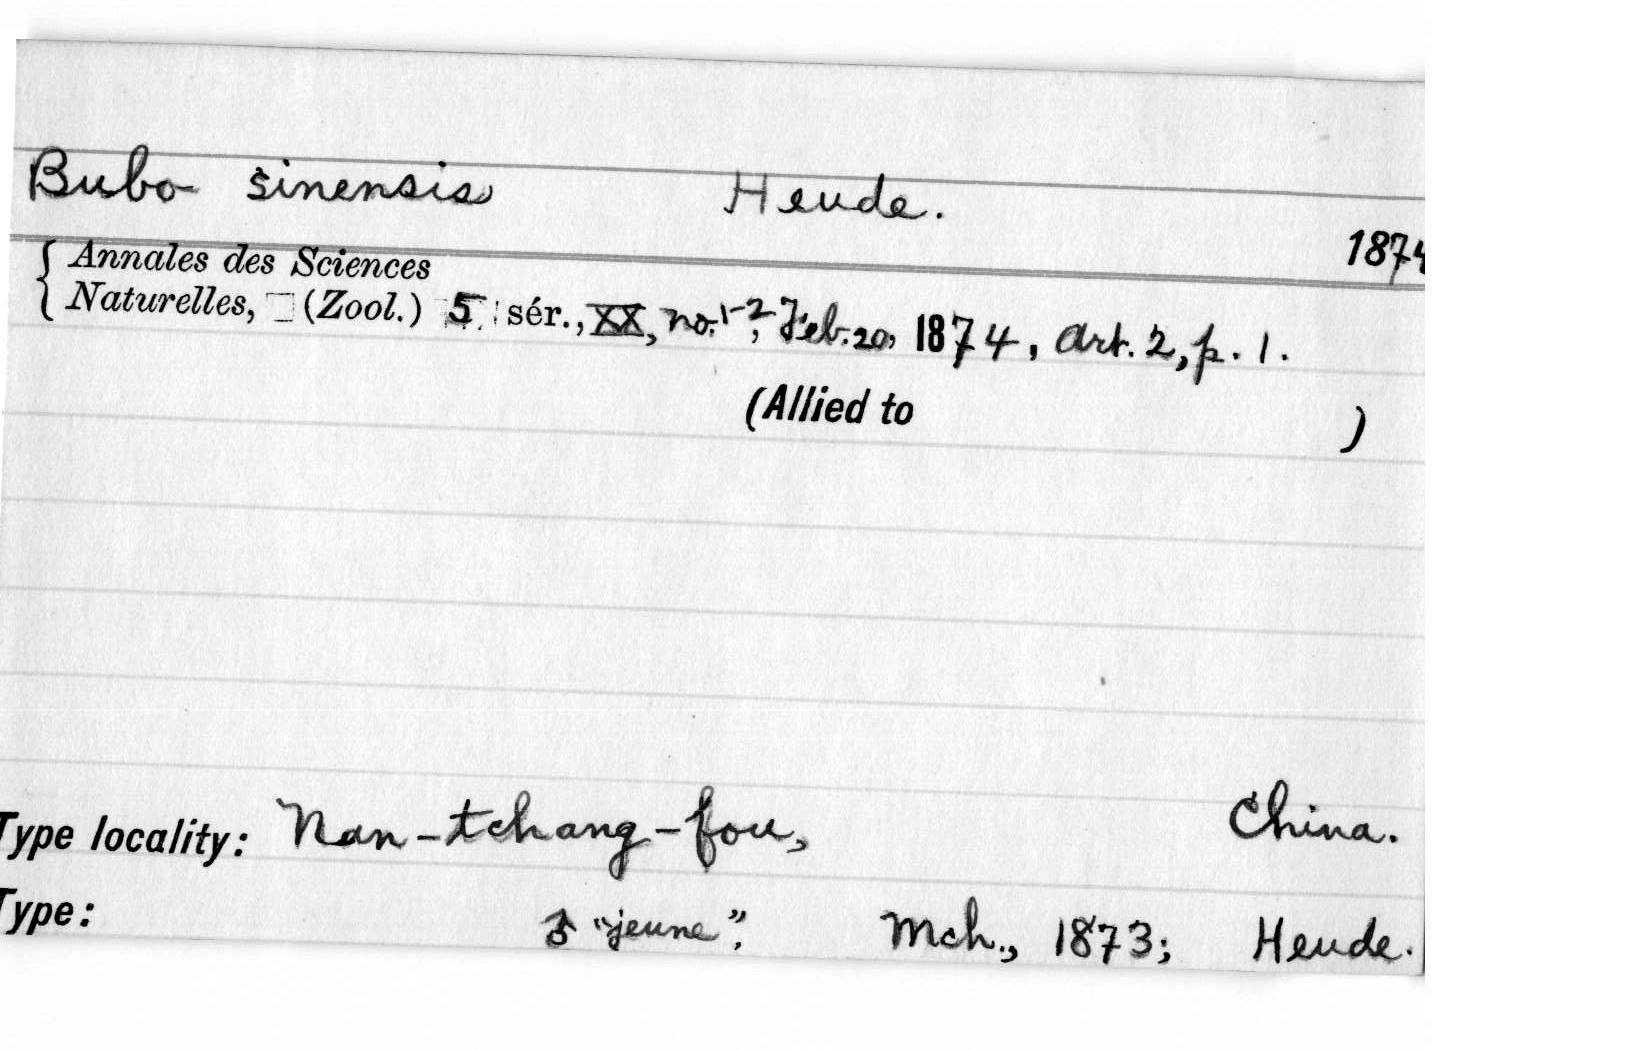 Bubo sinensis Heude.
1874
Annales des Sciences
Naturelles, (Zool.) 5 sér., XX, no. 1-2, Feb. 20, 1874, Art. 2, p. 1.
(Allied to )
Type locality: Nan-tchang-fou, China.
Type: ♂ "jeune", Mch., 1873; Heude.